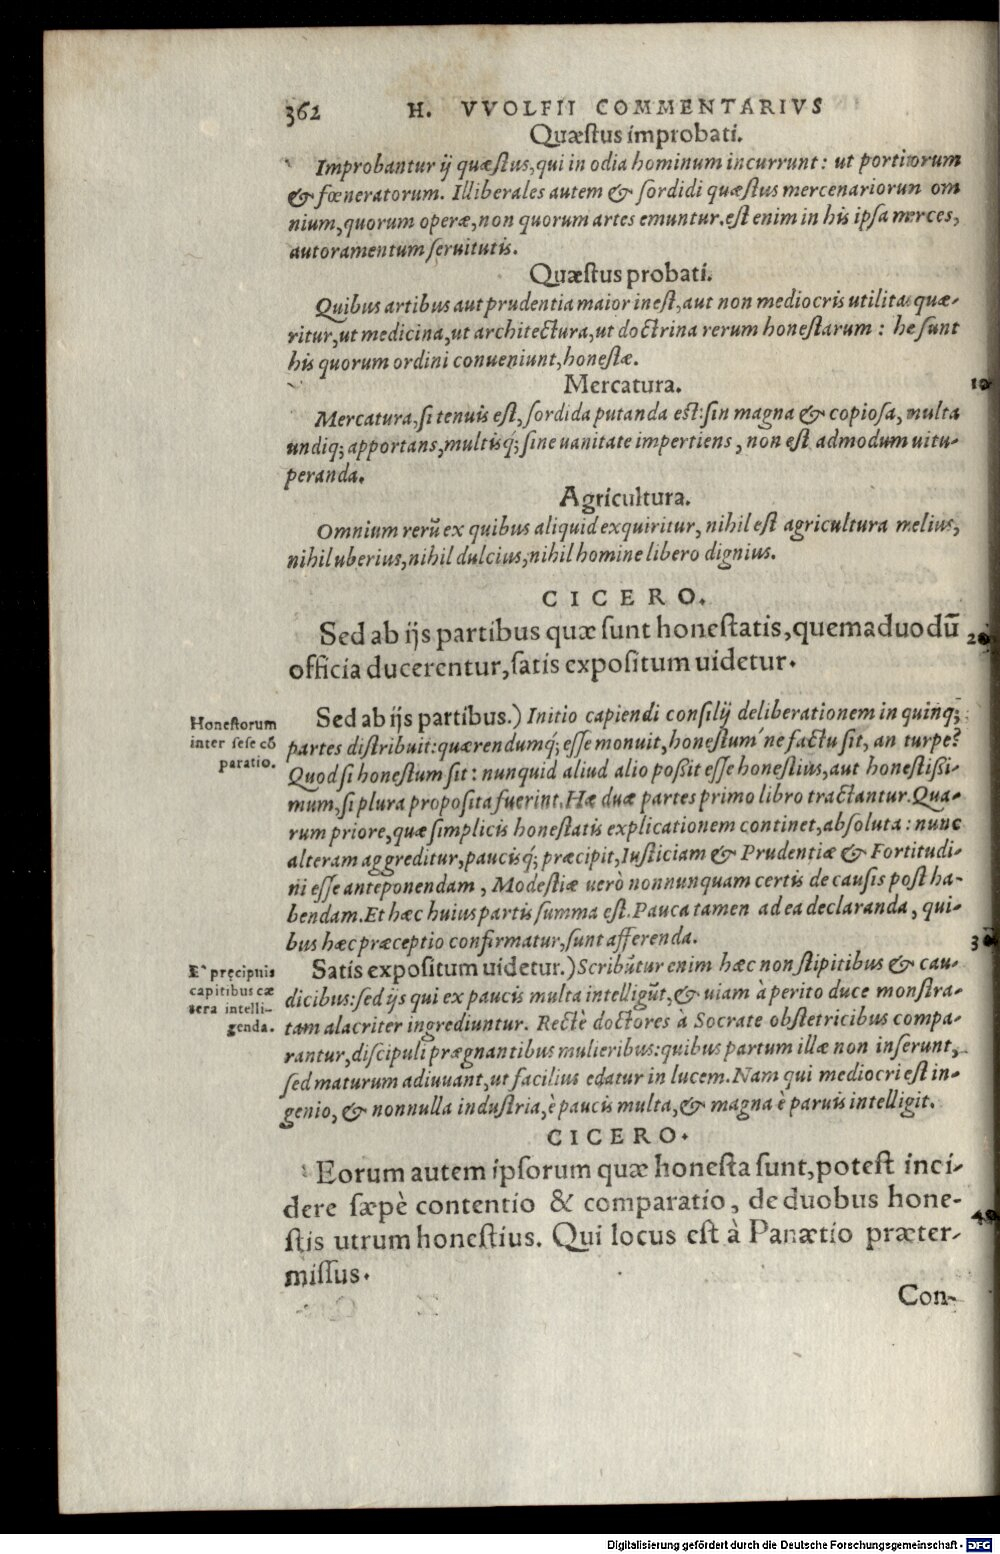 362 H. VVOLFII COMMENTARIVS
Quæstus improbati.
Improbantur ij quæstus, qui in odia hominum incurrunt: ut portitorum
& fœneratorum. Illiberales autem & sordidi quæstus mercenariorun om
nium, quorum operæ, non quorum artes emuntur. est enim in his ipsa merces,
autoramentum seruitutis.
Quæstus probati.
Quibus artibus aut prudentia maior inest, aut non mediocris utilitas quæ-
ritur, ut medicina, ut architectura, ut doctrina rerum honestarum: he sunt
his quorum ordini conueniunt, honestæ.
Mercatura. 10
Mercatura, si tenuis est, sordida putanda est: sin magna & copiosa, multa
undiq; apportans, multisq; sine uanitate impertiens, non est admodum uitu-
peranda.
Agricultura.
Omnium rerũ ex quibus aliquid exquiritur, nihil est agricultura melius,
nihil uberius, nihil dulcius, nihil homine libero dignius.
CICERO.
Sed ab ijs partibus quæ sunt honestatis, quemaduodũ 20
officia ducerentur, satis expositum uidetur.
Honestorum
inter sese cõ
paratio.
Sed ab ijs partibus.) Initio capiendi consilij deliberationem in quinq;
partes distribuit: quærendumq́; esse monuit, honestum ne factu sit, an turpe?
Quod si honestum sit: nunquid aliud alio poßit esse honestius, aut honestißi-
mum, si plura proposita fuerint. Hæ duæ partes primo libro tractantur. Qua-
rum priore, quæ simplicis honestatis explicationem continet, absoluta: nunc
alteram aggreditur, paucisq́; præcipit, Iusticiam & Prudentiæ & Fortitudi-
ni esse anteponendam, Modestiæ uerò nonnunquam certis de causis post ha-
bendam. Et hæc huius partis summa est. Pauca tamen ad ea declaranda, qui-
bus hæc præceptio confirmatur, sunt afferenda. 30
E præcipuis
capitibus cæ
tera intelli-
genda.
Satis expositum uidetur.) Scribũtur enim hæc non stipitibus & cau-
dicibus: sed ijs qui ex paucis multa intelligũt, & uiam à perito duce monstra-
tam alacriter ingrediuntur. Rectè doctores à Socrate obstetricibus compa-
rantur, discipuli prægnantibus mulieribus: quibus partum illæ non inserunt,
sed maturum adiuuant, ut facilius edatur in lucem. Nam qui mediocri est in-
genio, & nonnulla industria, è paucis multa, & magna è paruis intelligit.
CICERO.
Eorum autem ipsorum quæ honesta sunt, potest inci-
dere sæpè contentio & comparatio, de duobus hone-
stis utrum honestius. Qui locus est à Panætio præter- 40
missus.
Con-
Digitalisierung gefördert durch die Deutsche Forschungsgemeinschaft - DFG